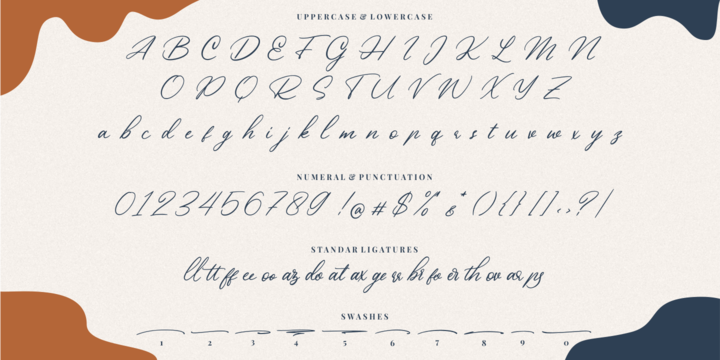 UPPERCASE & LOWERCASE
A B C D E F G H I J K L M N
O P Q R S T U V W X Y Z
a b c d e f g h i j k l m n o p q r s t u v w x y z
NUMERAL & PUNCTUATION
0123456789 !@#$%&*(){}[]<>?/
STANDAR LIGATURES
ll tt ff ee oo az do at ax ge br fo er th ov
SWASHES
1 2 3 4 5 6 7 8 9 0